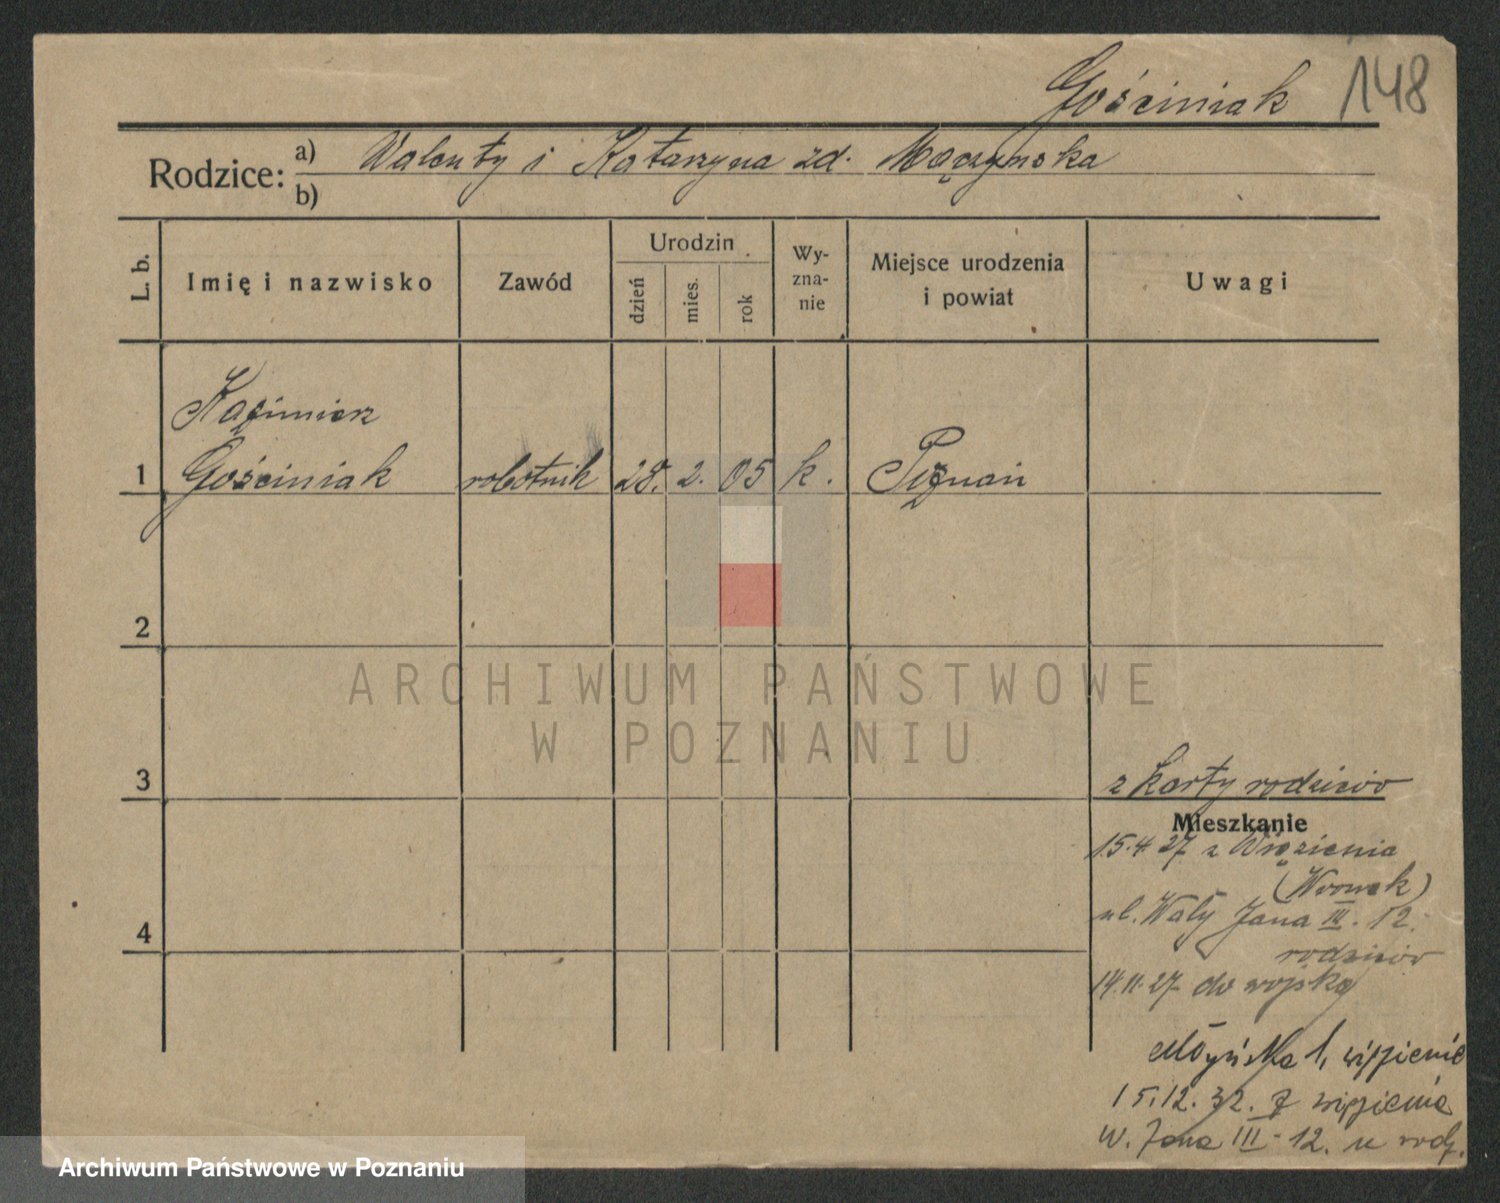 Gościniak 148
Rodzice: a) Walenty i Katarzyna zd. Mączyńska
b)
L. b. Imię i nazwisko Zawód Urodzin dzień mies. rok Wyznanie Miejsce urodzenia i powiat Uwagi
Kazimierz
1 Gościniak robotnik 28. 2. 05 k. Poznań
2
ARCHIWUM PAŃSTWOWE
W POZNANIU
3 z karty rodziców
Mieszkanie
15.4.27 z Więzienia
(Wronek)
ul. Wały Jana III - 12.
4
rodziców
14.11.27 do wojska
Młyńska 1, więzienie
15.12.32. z więzienia
W. Jana III - 12. u rodz.
Archiwum Państwowe w Poznaniu